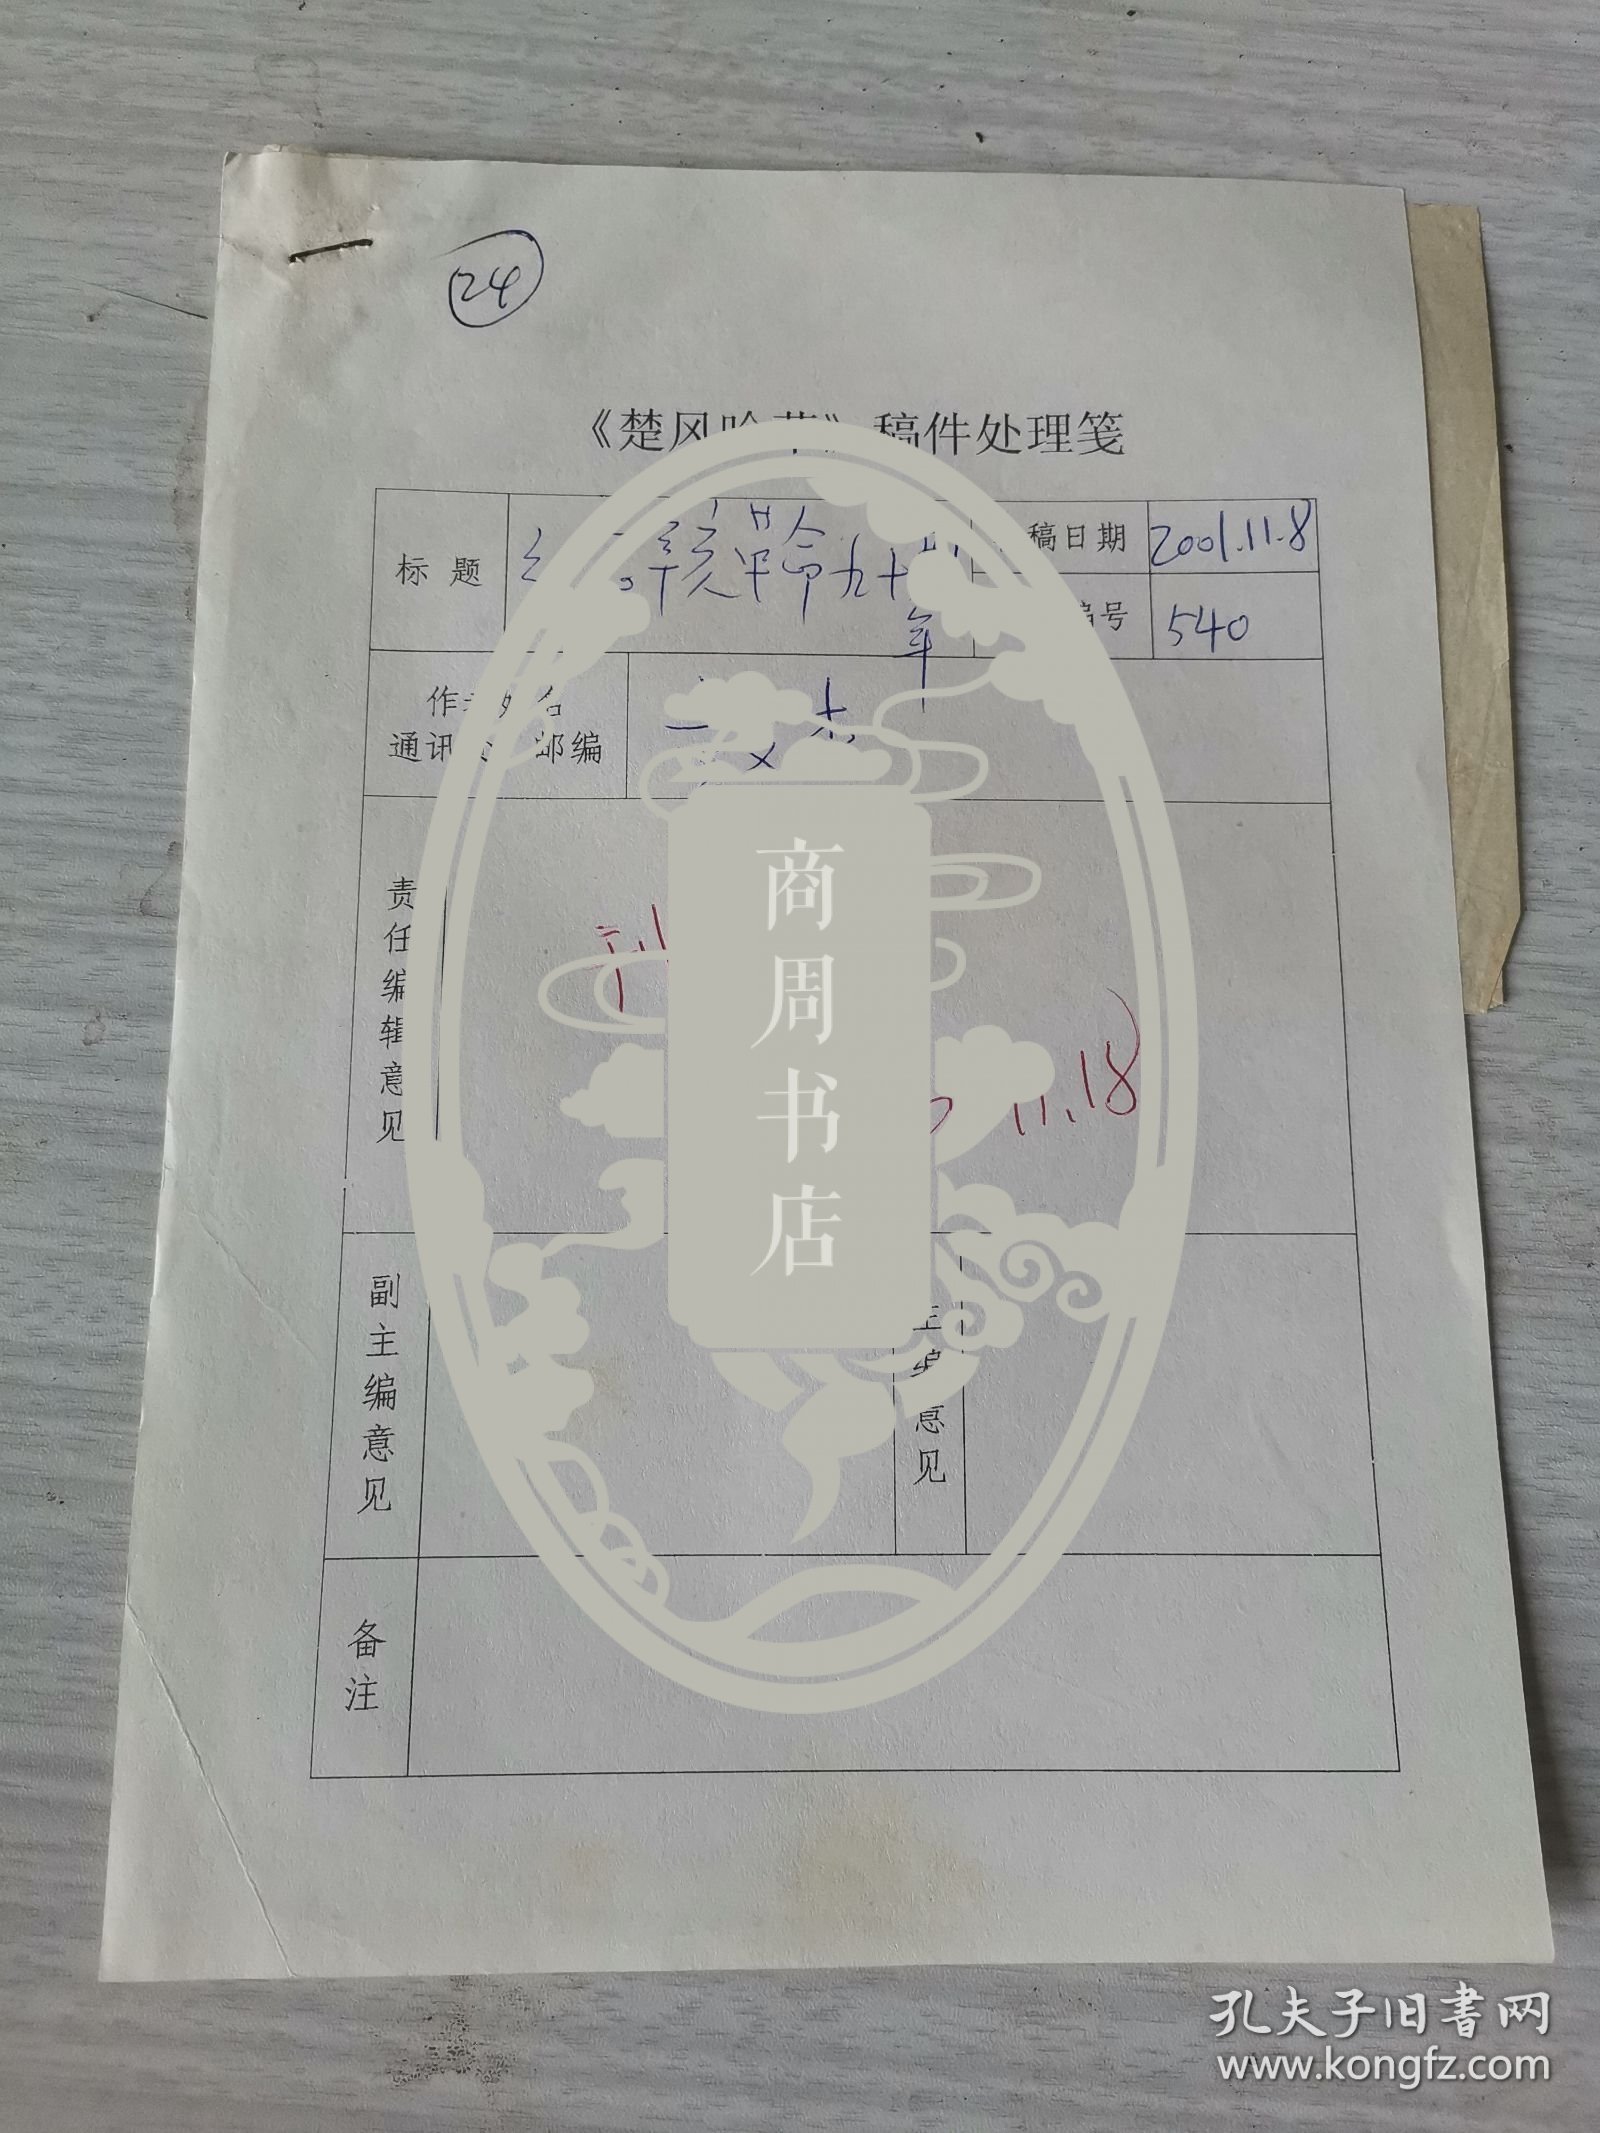 24
《楚风吟草》稿件处理笺
标 题
九十
年
稿日期
2001.11.8
编号
540
作者姓名
通讯 邮编
责任编辑意见
11.18
副主编意见
主编意见
备注
商周书店
孔夫子旧书网
www.kongfz.com